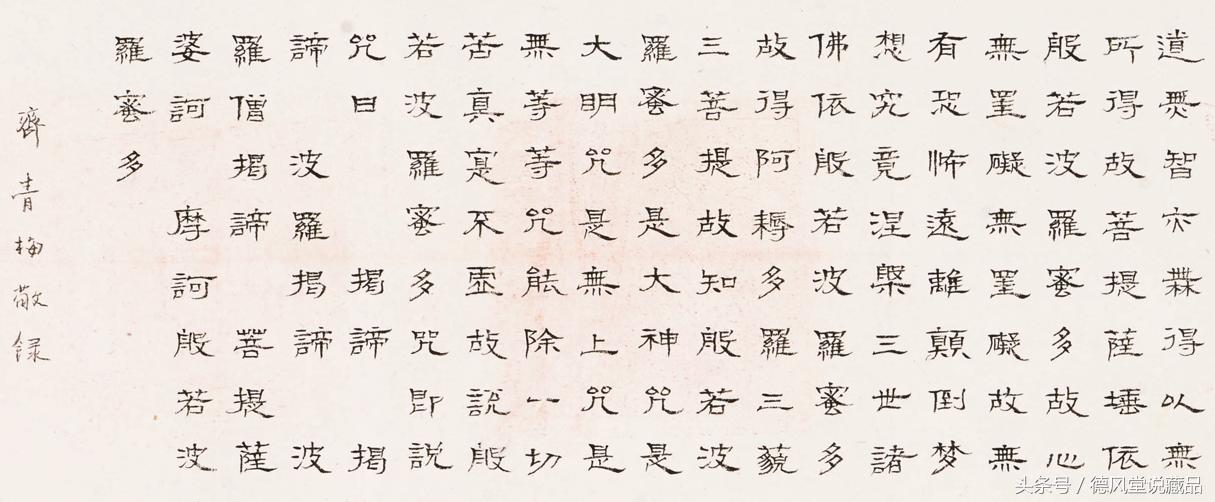 道無智亦無得以無
所得故菩提薩埵依
般若波羅蜜多故心
無罣礙無罣礙故無
有恐怖遠離顛倒梦
想究竟涅槃三世諸
佛依般若波羅蜜多
故得阿耨多羅三藐
三菩提故知般若波
羅蜜多是大神咒是
大明咒是無上咒是
無等等咒能除一切
苦真寔不虛故説般
若波羅蜜多咒即説
咒曰 揭諦 揭
諦 波羅揭諦 波
羅僧揭諦 菩提薩
婆訶 摩訶般若波
羅蜜多
齊青梅敬録
头条号 / 德风堂说藏品